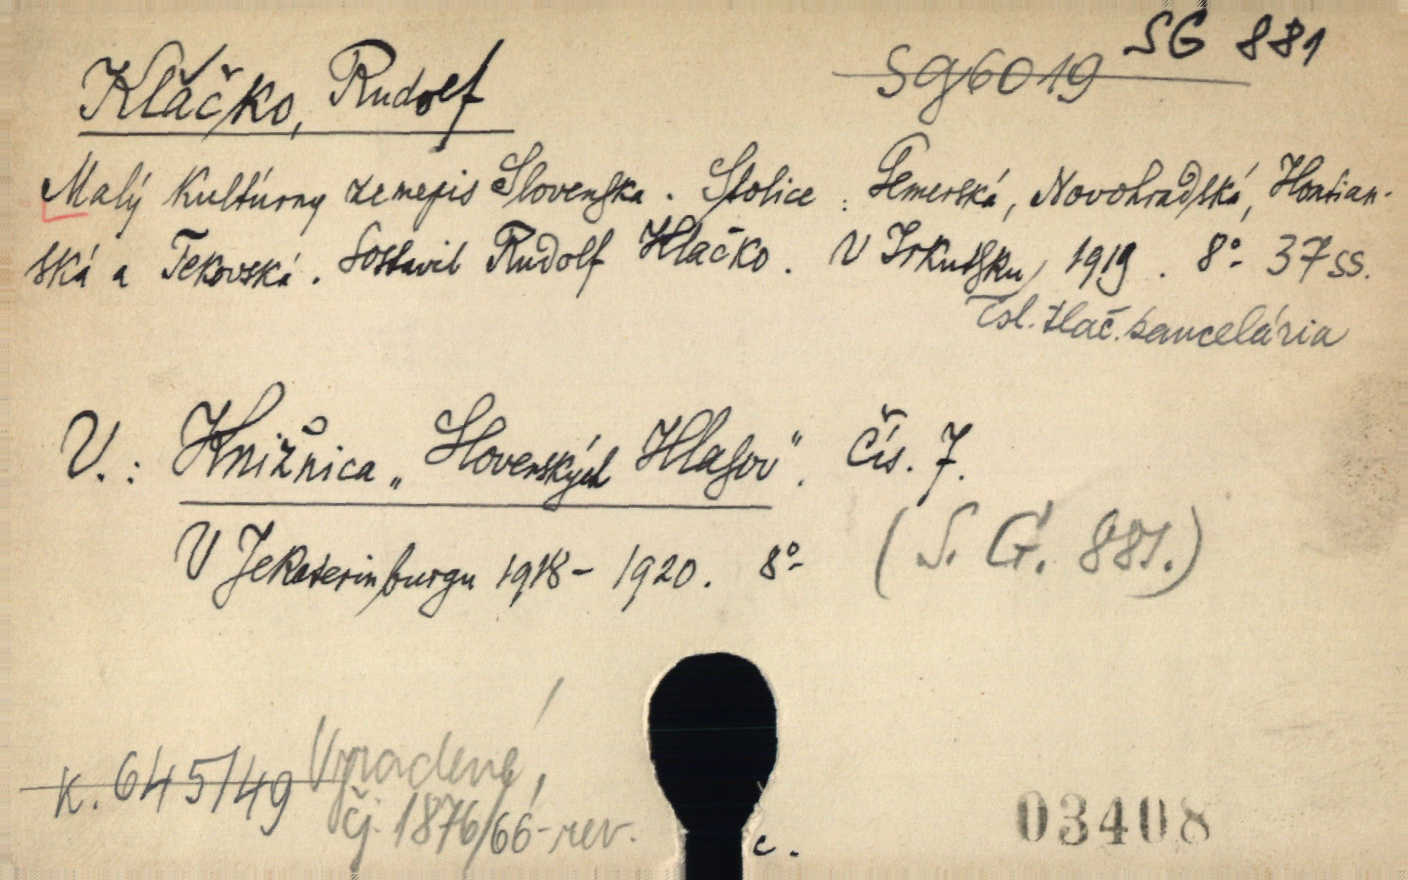 SG 881
SG 6019
Klačko, Rudolf
Malý kultúrny zemepis Slovenska. Stolice: Gemerská, Novohradská, Hontian-
ská a Tekovská. Sostavil Rudolf Klačko. V Irkutsku, 1919. 8°- 37 ss.
Čsl. tlač. kancelária
V.: Knižnica „Slovenských Hlasov". Čís. 7.
V Jekaterinburgu 1918-1920. 8°-
(S. G. 881.)
K. 645/49
Vyradené,
čj. 1876/66-rev.
c.
03408